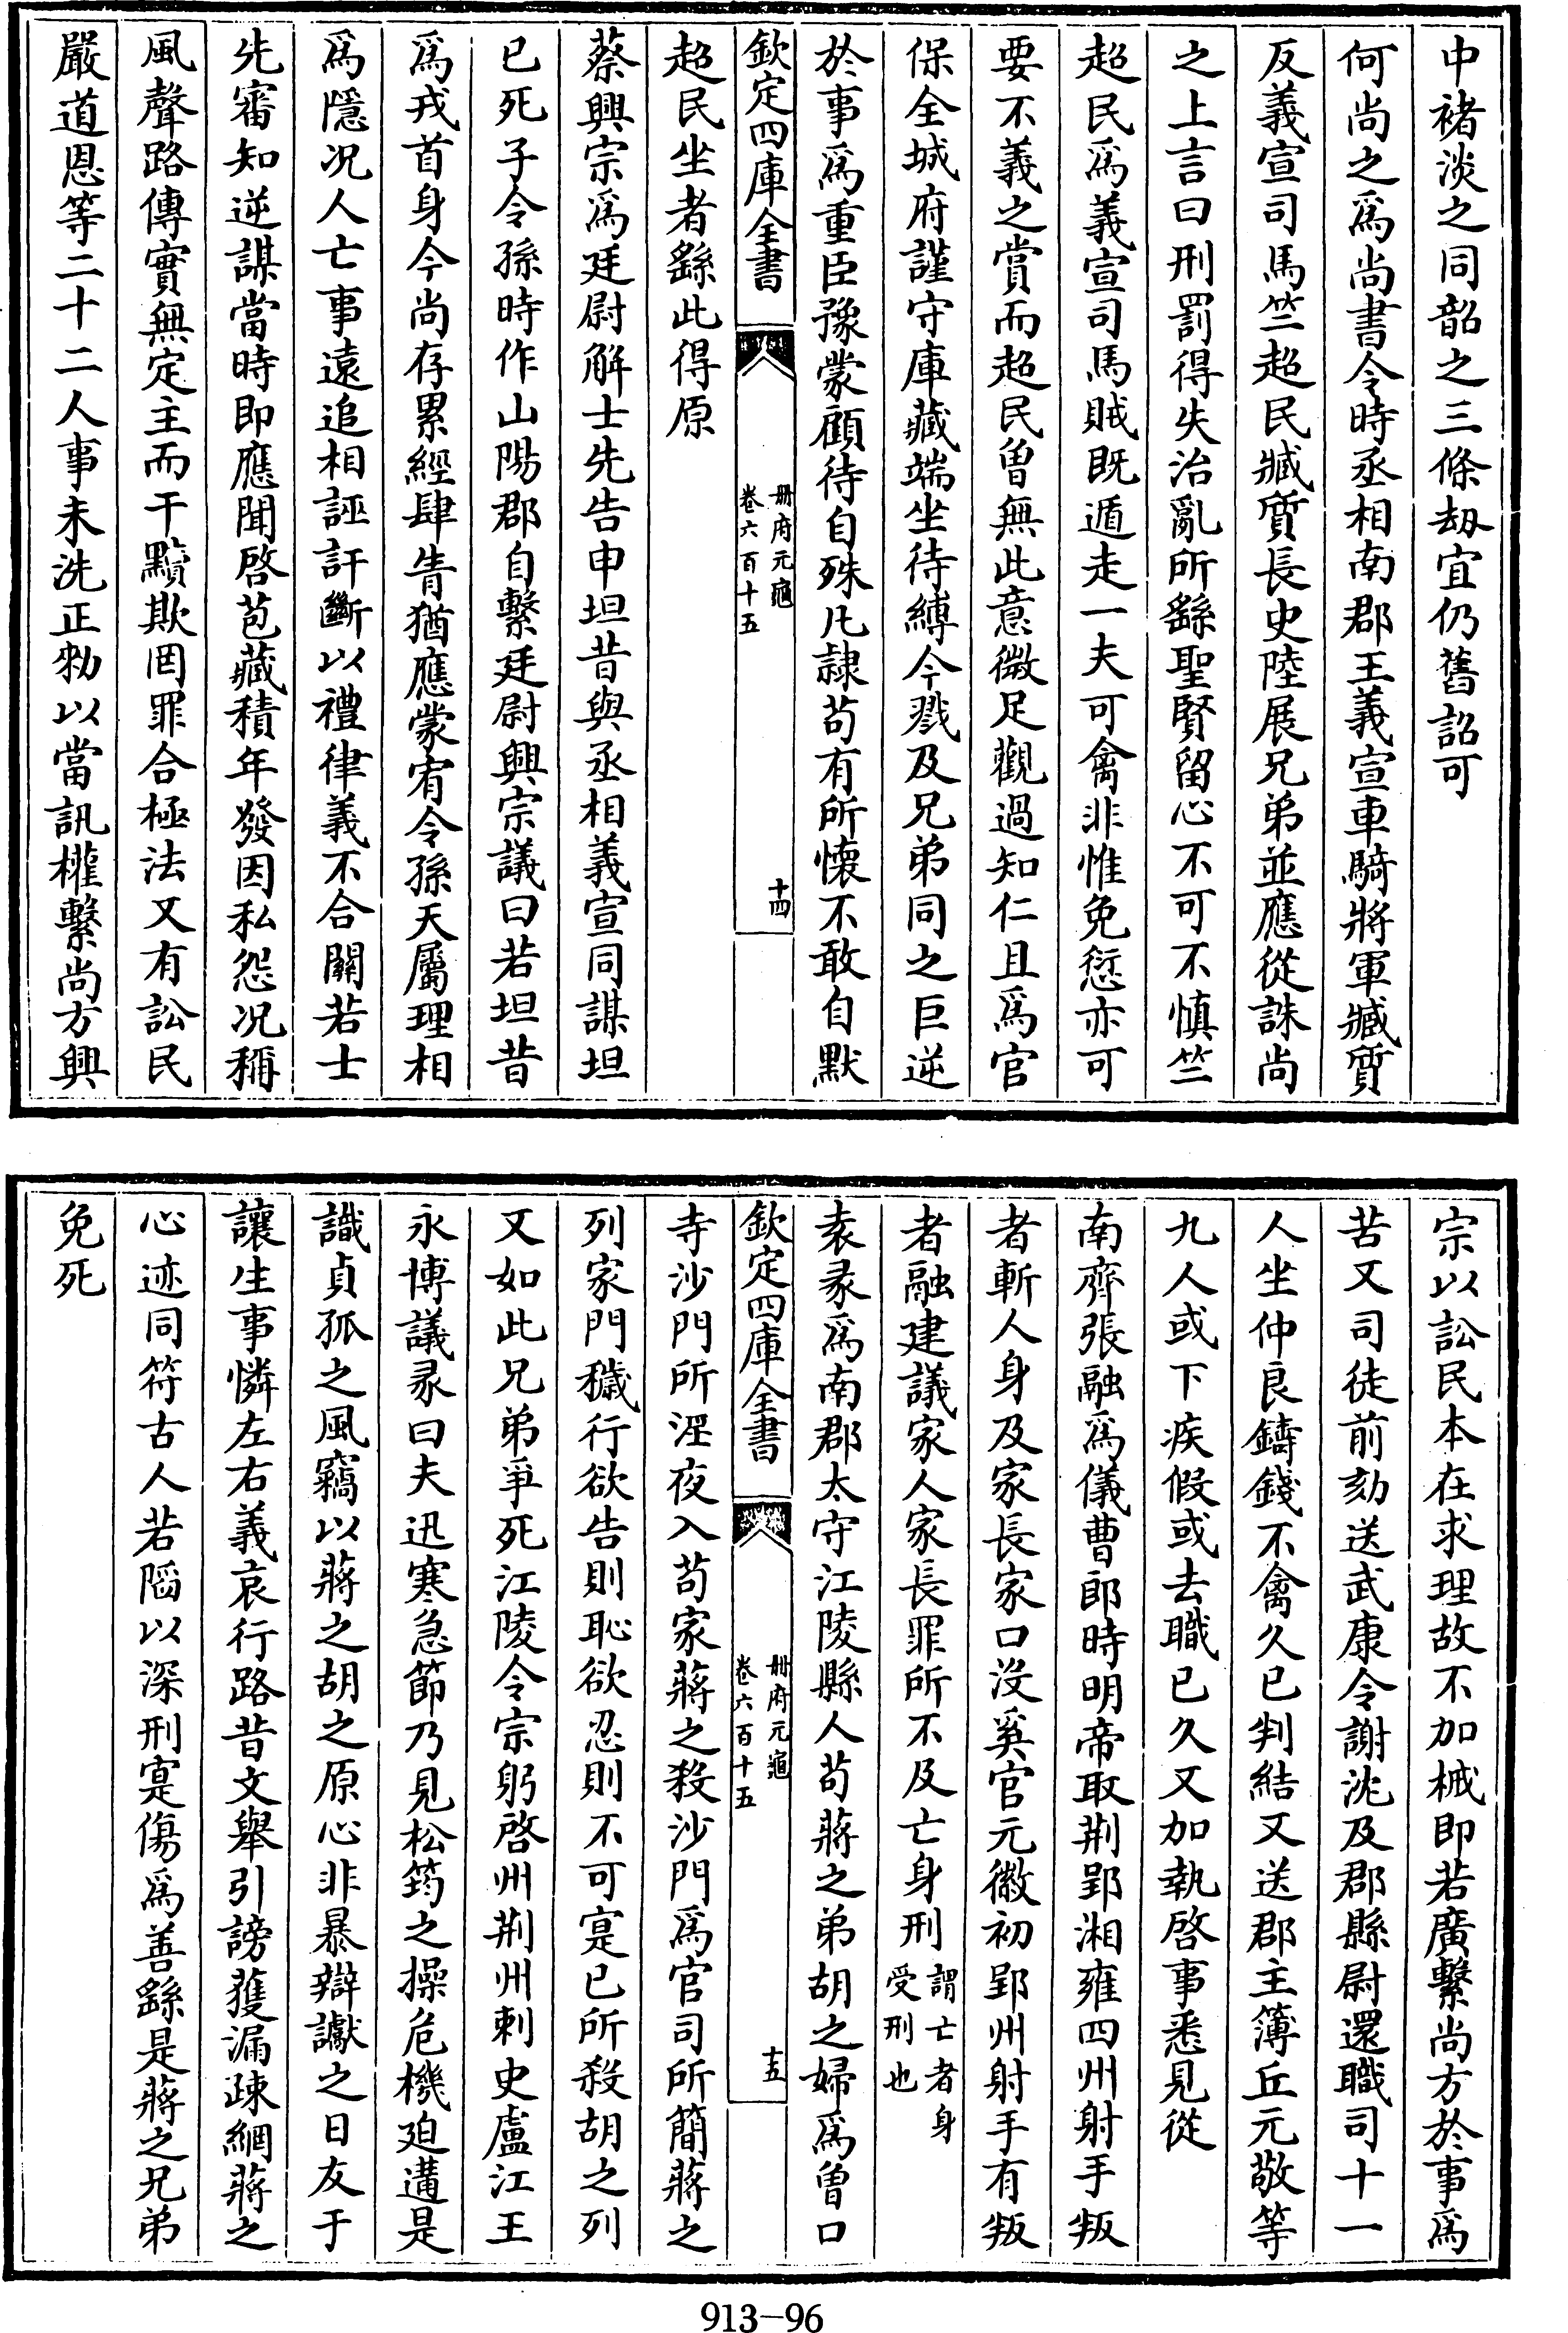 中褚淡之同韶之三條刼宜仍舊詔可
何尚之爲尚書令時丞相南郡王義宣車騎將軍臧質
反義宣司馬竺超民臧質長史陸展兄弟並應從誅尚
之上言曰刑罰得失治亂所繇聖賢留心不可不慎竺
超民爲義宣司馬賊既遁走一夫可禽非惟免愆亦可
要不義之賞而超民曾無此意微足觀過知仁且爲官
保全城府謹守庫藏端坐待縛今戮及兄弟同之巨逆
於事爲重臣豫蒙顧待自殊凡隷苟有所懷不敢自默
欽定四庫全書
冊府元龜
卷六百十五
十四
超民坐者繇此得原
蔡興宗爲廷尉解士先告申坦昔與丞相義宣同謀坦
已死子令孫時作山陽郡自繫廷尉興宗議曰若坦昔
爲戎首身今尚存累經肆眚猶應蒙宥令孫天屬理相
爲隱况人亡事遠追相誣訐斷以禮律義不合關若士
先審知逆謀當時即應聞啓苞藏積年發因私怨况稱
風聲路傳實無定主而干黷欺罔罪合極法又有訟民
嚴道恩等二十二人事未洗正勑以當訊權繫尚方興
宗以訟民本在求理故不加械即若廣繫尚方於事爲
苦又司徒前劾送武康令謝沈及郡縣尉還職司十一
人坐仲良鑄錢不禽久已判結又送郡主簿丘元敬等
九人或下疾假或去職已久又加執啓事悉見從
南齊張融爲儀曹郎時明帝取荆郢湘雍四州射手叛
者斬人身及家長家口沒奚官元徽初郢州射手有叛
者融建議家人家長罪所不及亡身刑謂亡者身
受刑也
袁彖爲南郡太守江陵縣人苟蔣之弟胡之婦爲曾口
欽定四庫全書
冊府元龜
卷六百十五
十五
寺沙門所淫夜入苟家蔣之殺沙門爲官司所簡蔣之
列家門穢行欲告則恥欲忍則不可寔已所殺胡之列
又如此兄弟爭死江陵令宗躬啓州荆州刺史盧江王
永博議彖曰夫迅寒急節乃見松筠之操危機迫遘是
識貞孤之風竊以蔣之胡之原心非暴辯讞之日友于
讓生事憐左右義哀行路昔文舉引謗獲漏疎網蔣之
心迹同符古人若陷以深刑寔傷爲善繇是蔣之兄弟
免死
913-96